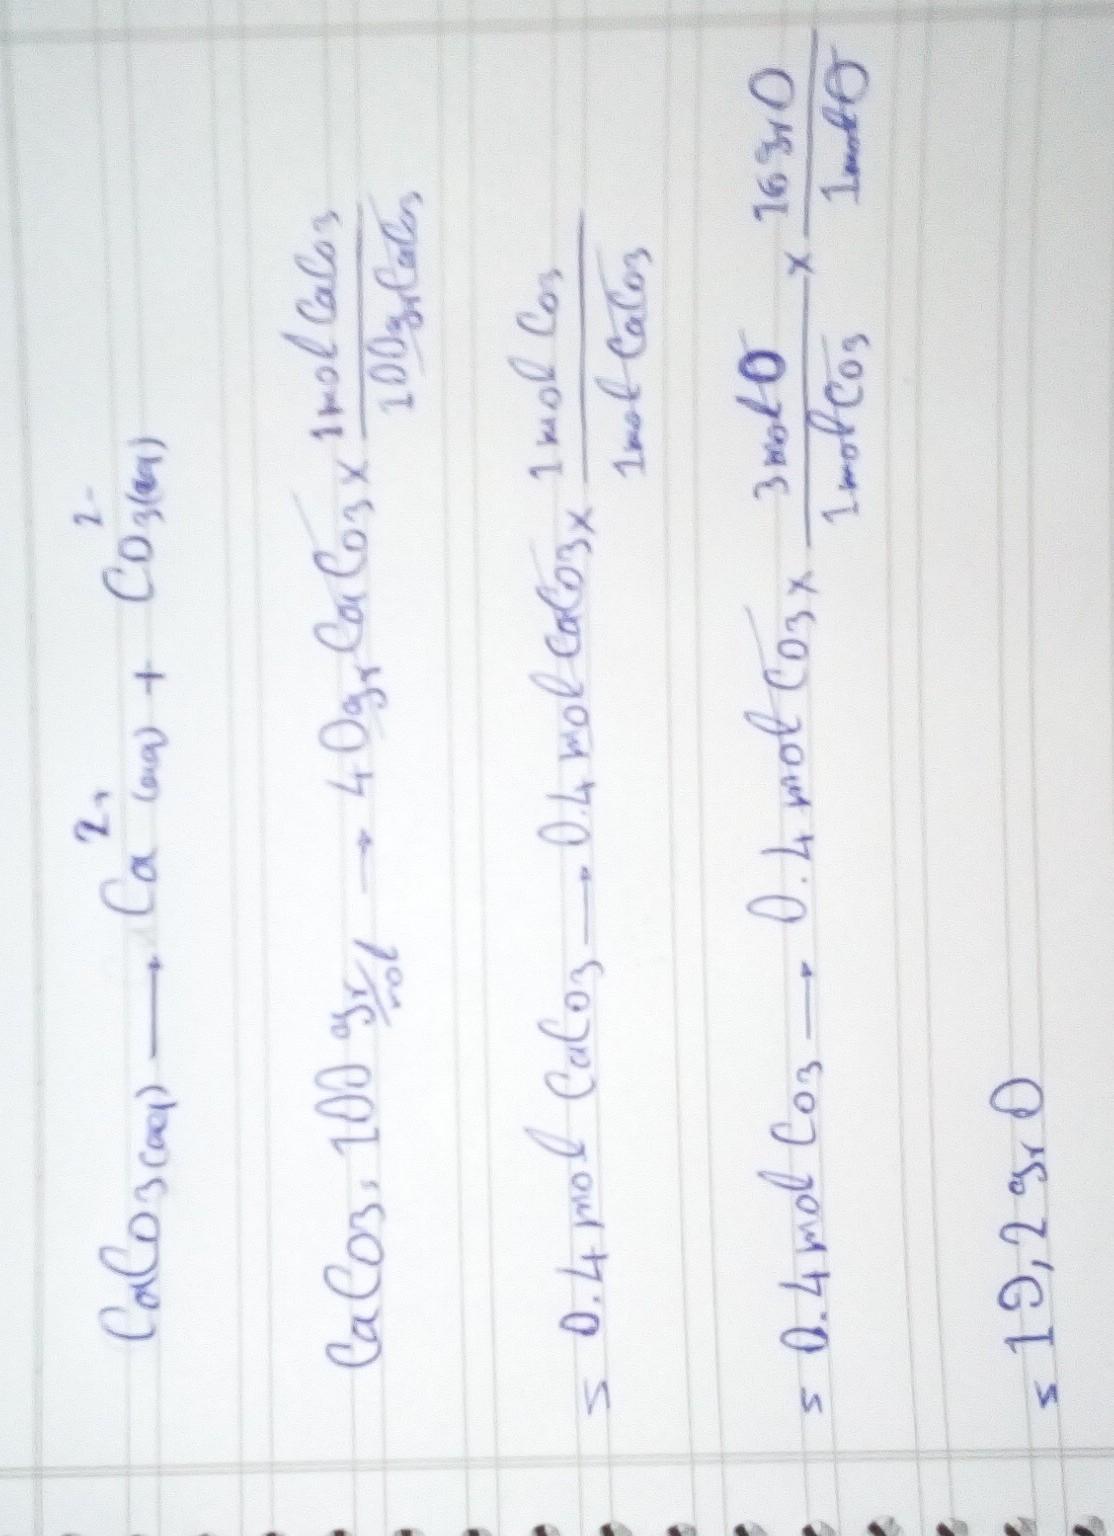 CaCO3(aq) → Ca2+(aq) + CO3 2-(aq)
CaCO3: 100 gr/mol → 40gr CaCO3 x 1mol CaCO3/100gr CaCO3
= 0.4 mol CaCO3 → 0.4 mol CaCO3 x 1mol CO3/1mol CaCO3
= 0.4 mol CO3 → 0.4 mol CO3 x 3mol O/1mol CO3 x 16gr O/1mol O
= 19,2 gr O